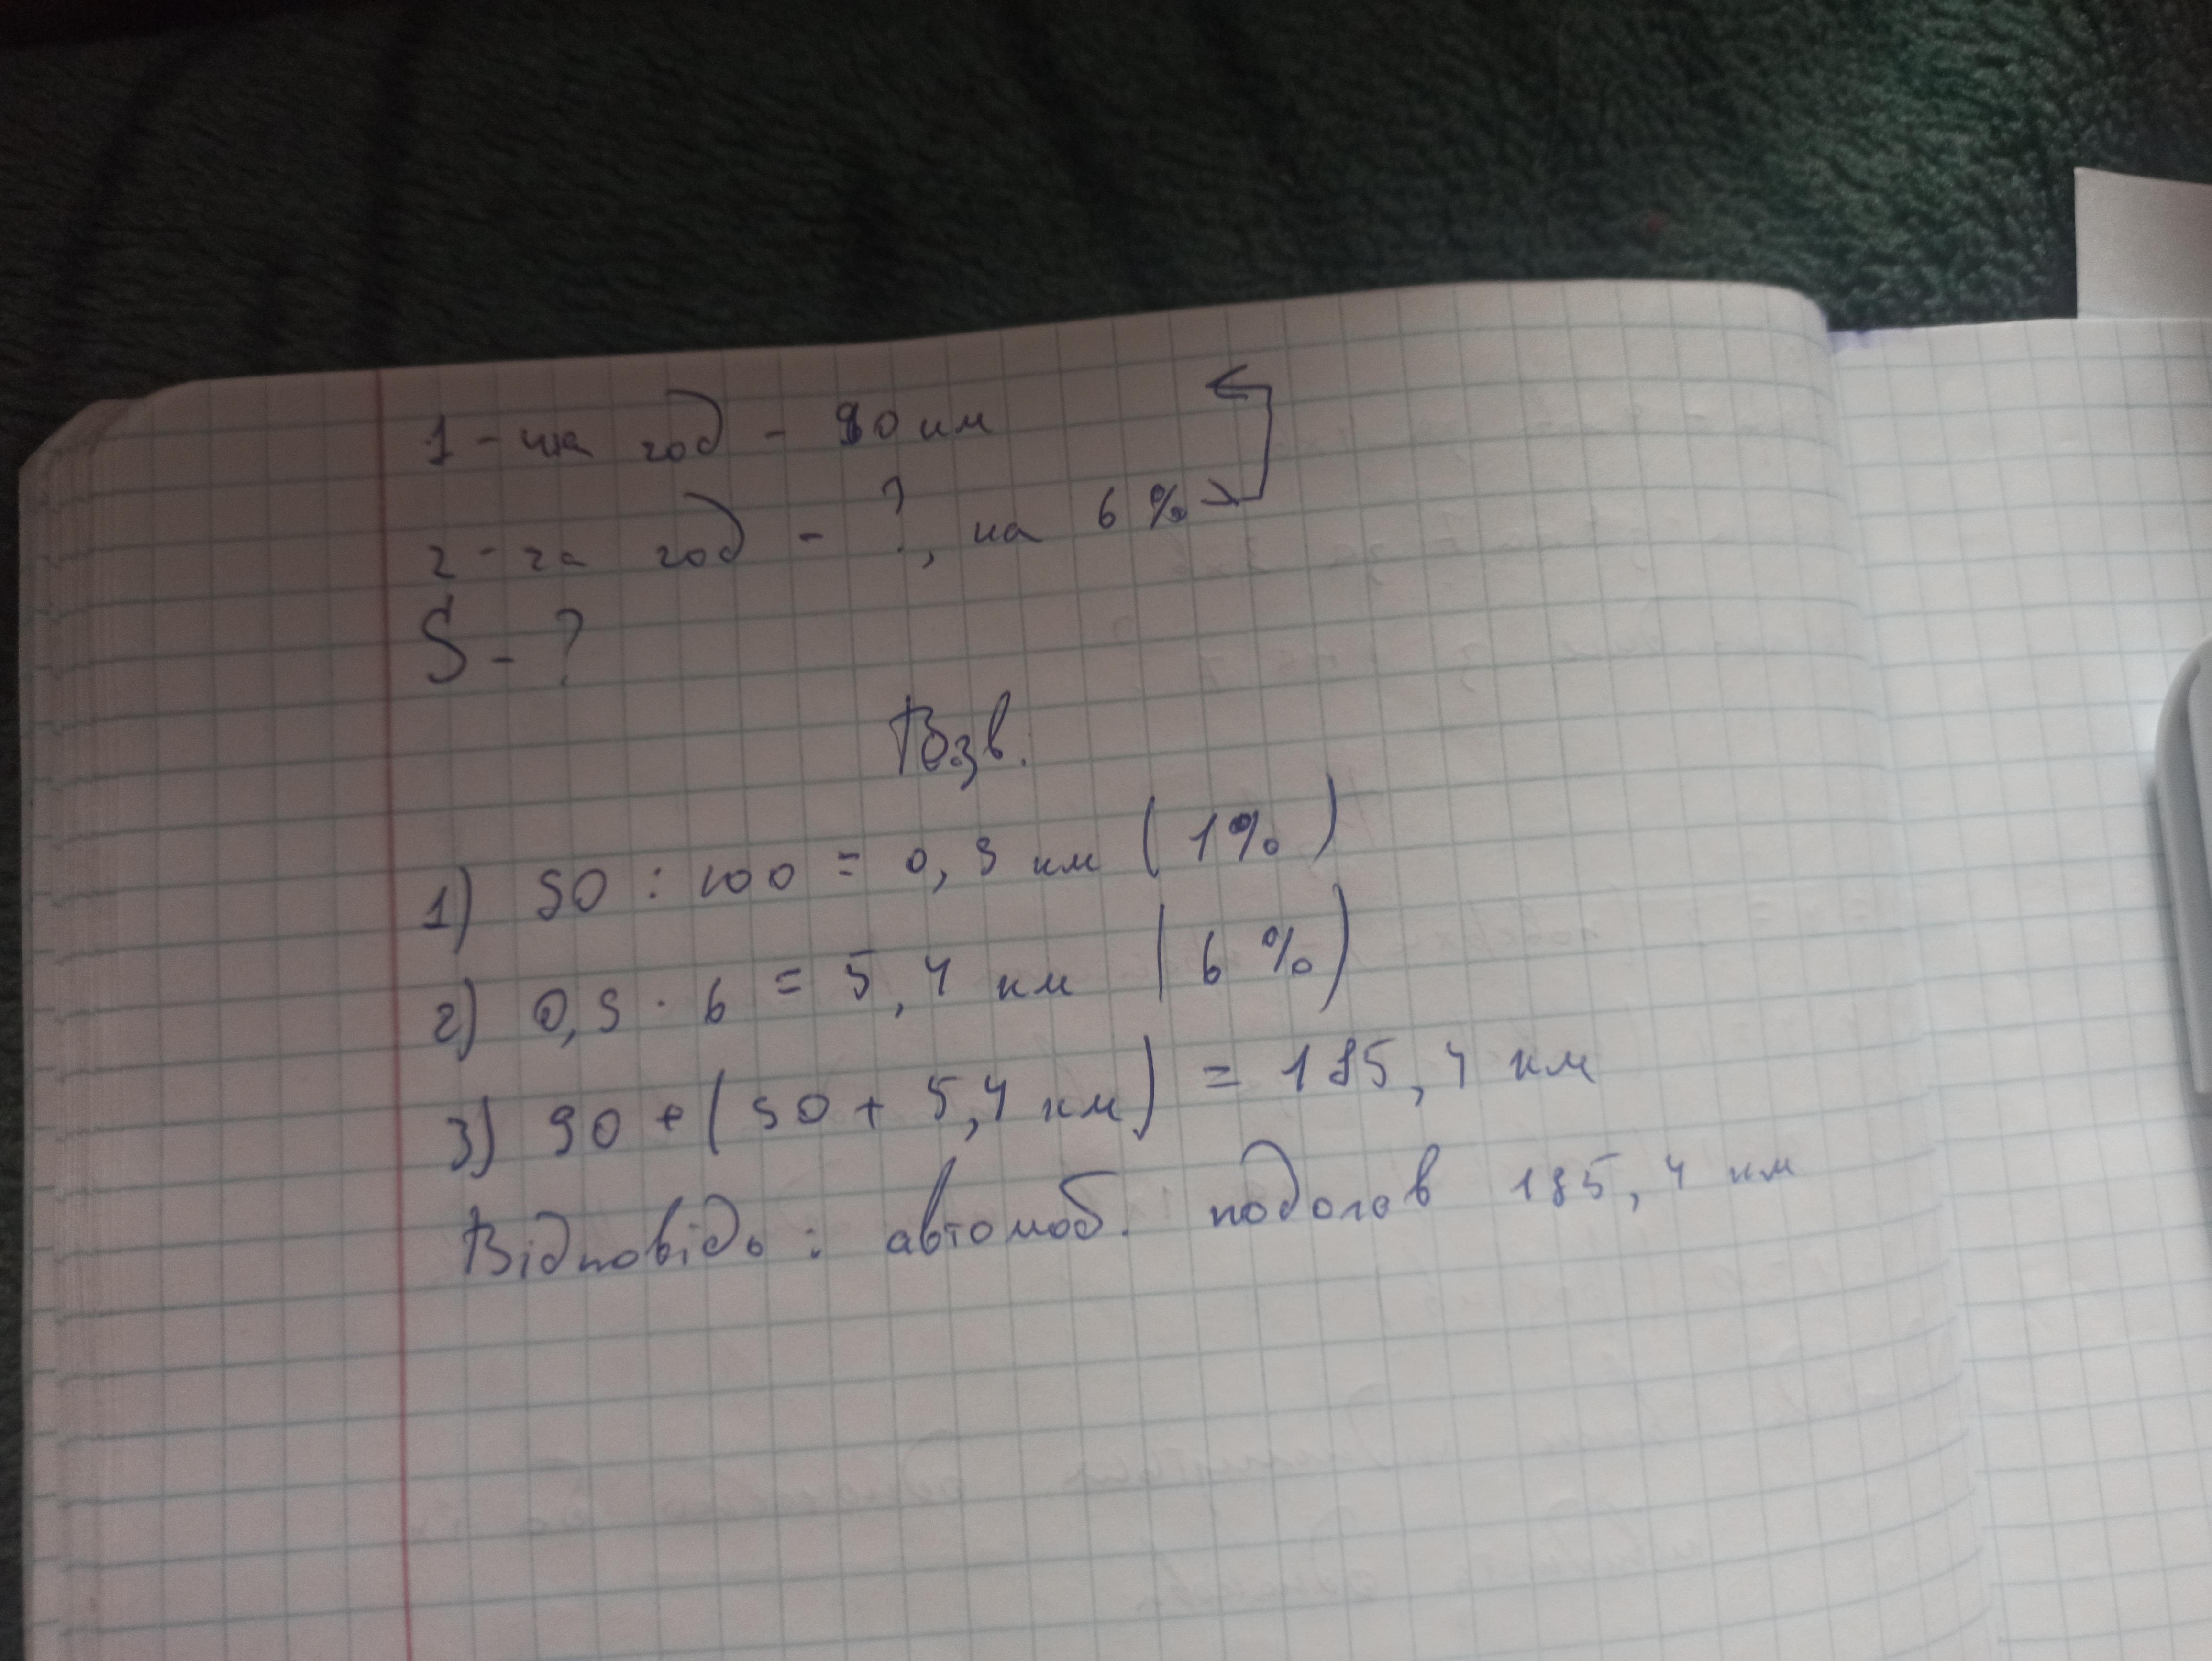 1-ша год - 90 км
2-га год - ?, на 6% >
S - ?
Розв.
1) 90 : 100 = 0,9 км (1%)
2) 0,9 · 6 = 5,4 км (6%)
3) 90 + (90 + 5,4 км) = 185,4 км
Відповідь: автомоб. подолав 185,4 км